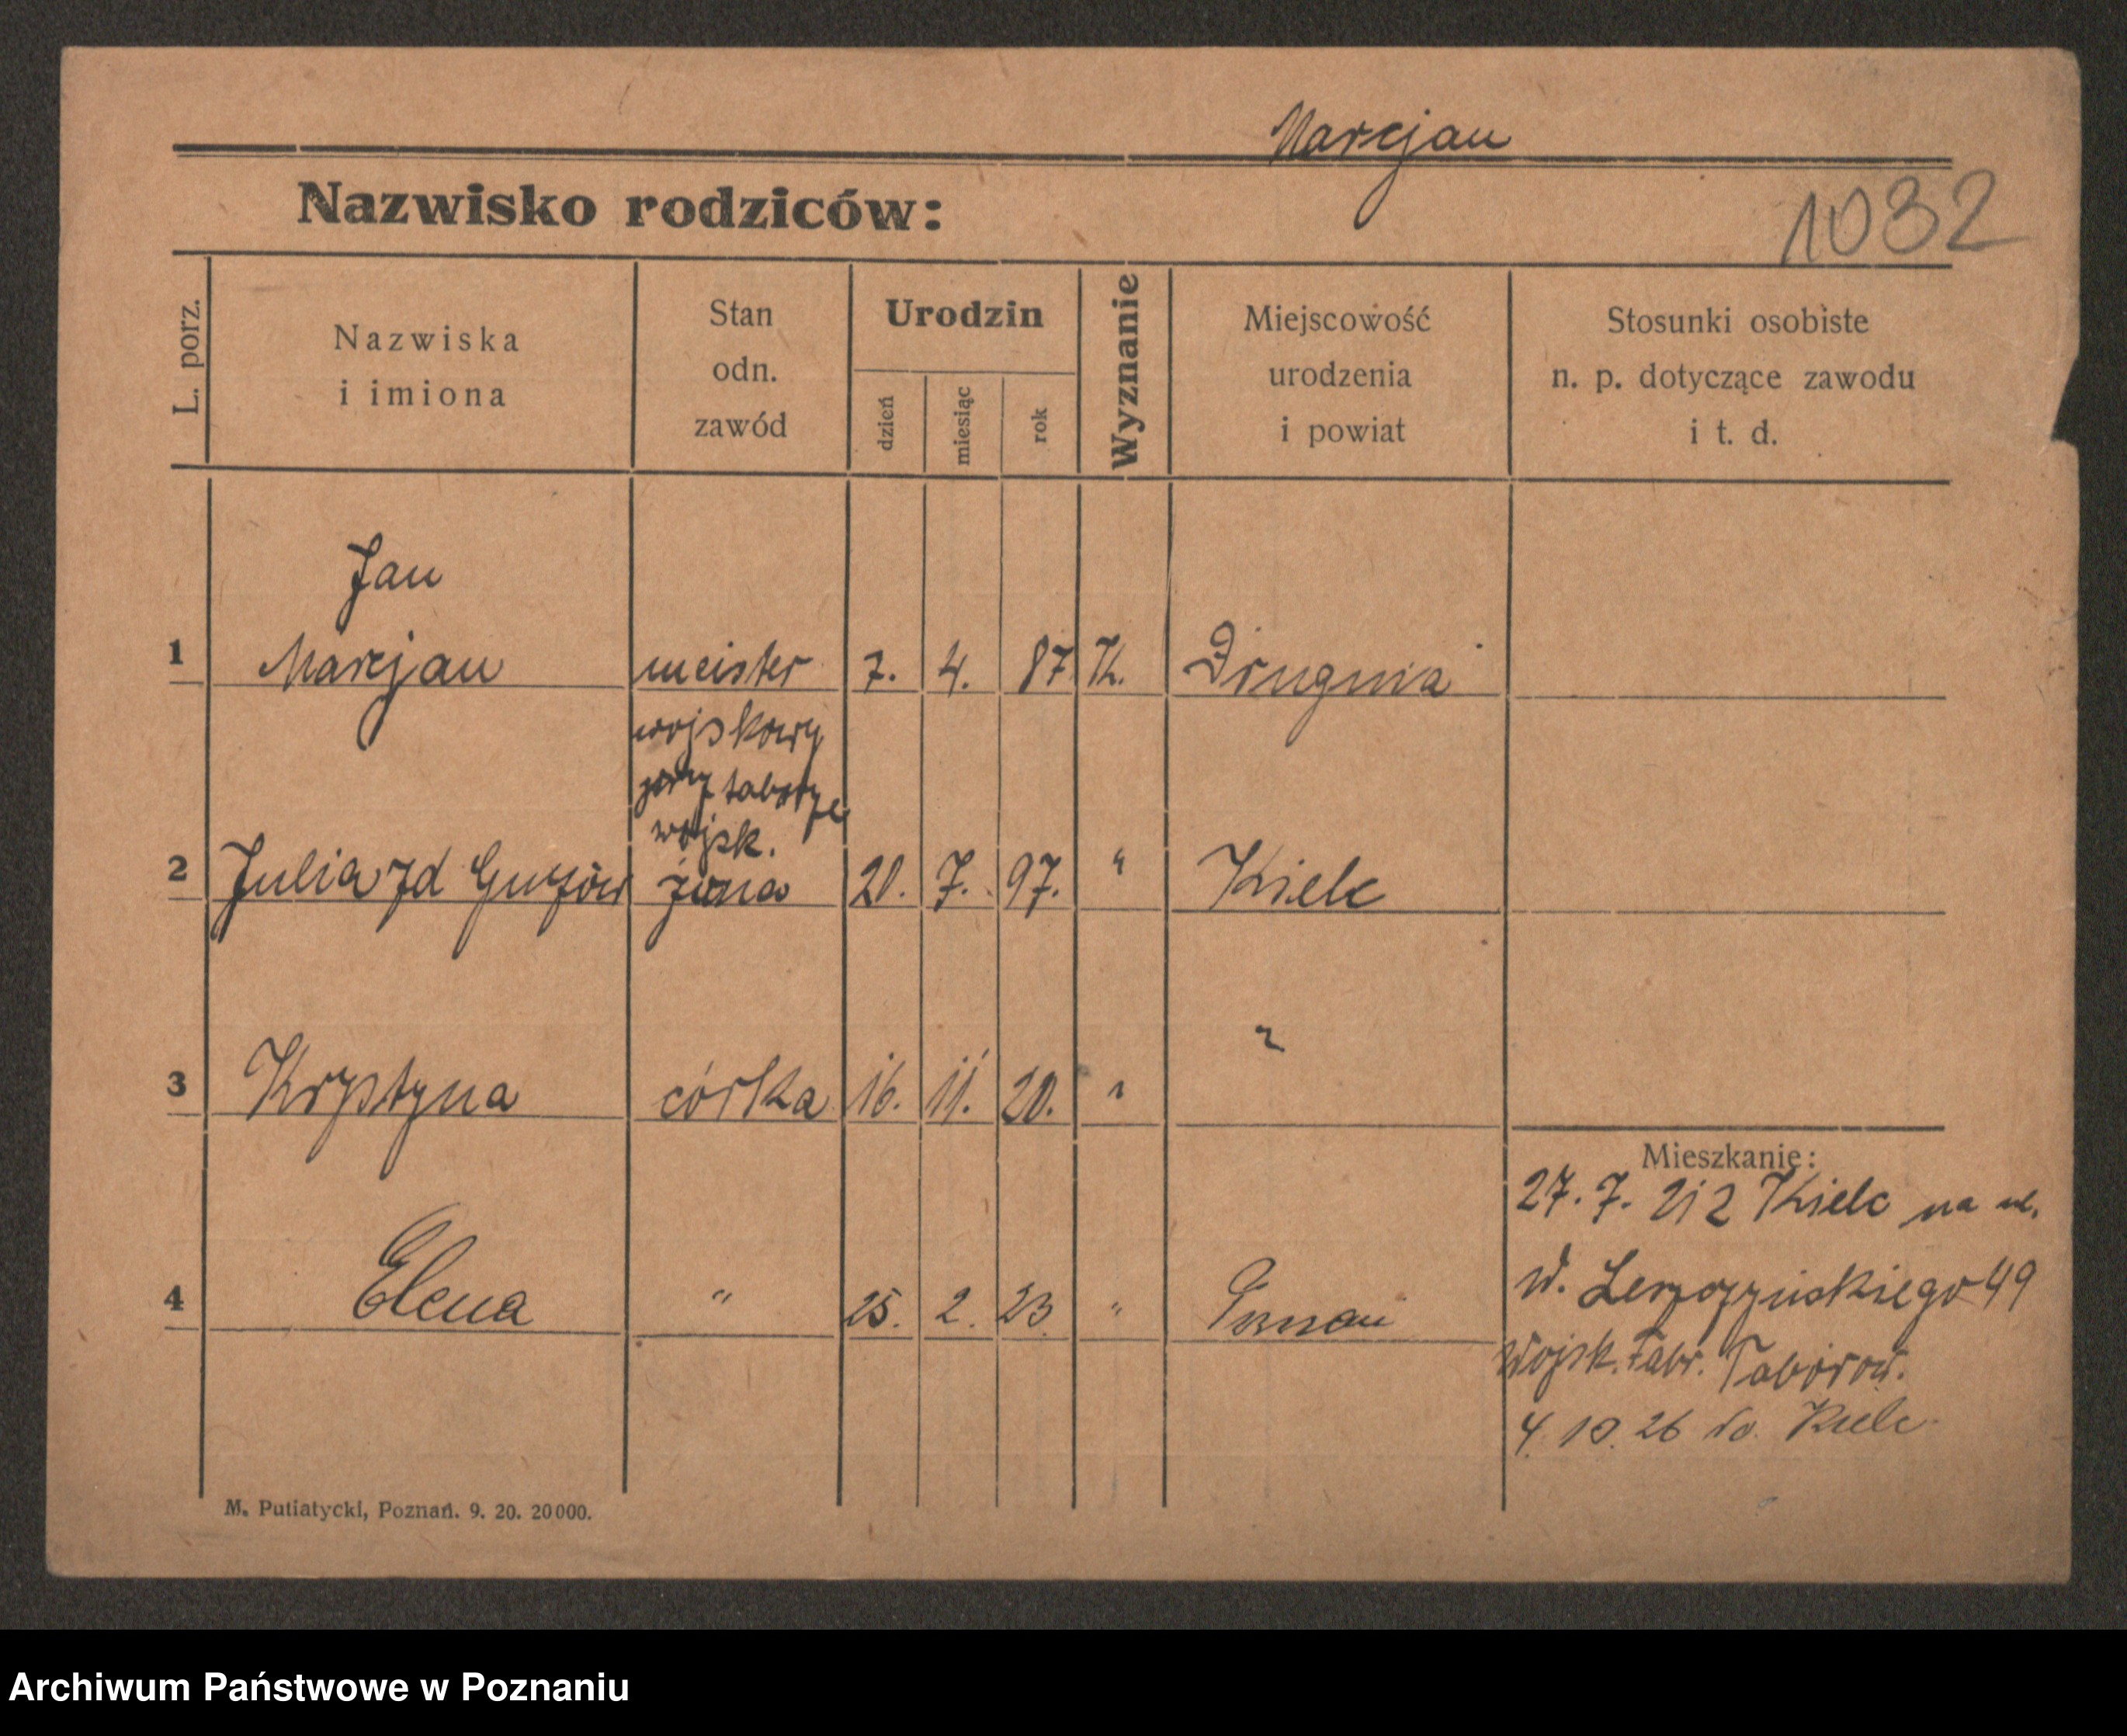 Marcjan
Nazwisko rodziców:
1032
L. porz.
Nazwiska
i imiona
Stan
odn.
zawód
Urodzin
dzień
miesiąc
rok
Wyznanie
Miejscowość
urodzenia
i powiat
Stosunki osobiste
n. p. dotyczące zawodu
i t. d.
Jan
1 Marcjan meister 7. 4. 87. K. Drugnia
wojskowy
przy taborze
wojsk.
2 Julia zd żona 20. 7. 97. " Kielc
"
3 Krystyna córka 16. 11. 20. "
Mieszkanie:
27. 7. Kielc na ul.
4 Elena " 25. 2. 23 " Poznań
W. 49
Wojsk. Taborow.
4. 10. 26 do Kielc
M. Putiatycki, Poznań. 9. 20. 20000.
Archiwum Państwowe w Poznaniu